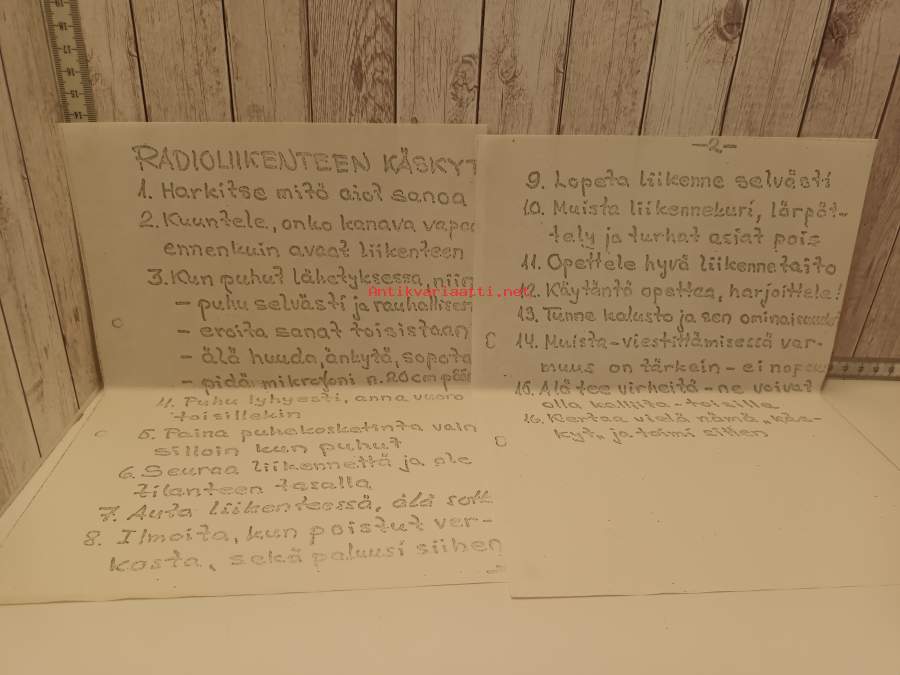 RADIOLIIKENTEEN KÄSKYT
1. Harkitse mitä aiot sanoa
2. Kuuntele, onko kanava
ennenkuin avaat liikenteen
3. Kun puhut lähetyksessä, niin
- puhu selvästi ja
- eroita sanat toisistaan
- älä huuda, änkytä, sopota
- pidä mikrofoni n. 20 cm
4. Puhu lyhyesti, anna vuoro
toisillekin
5. Paina puhekosketinta vain
silloin kun puhut
6. Seuraa liikennettä ja ole
tilanteen tasalla
7. Auta liikenteessä, älä
8. Ilmoita, kun poistut ver-
kosta, sekä paluusi siihen
-2-
9. Lopeta liikenne selvästi
10. Muista liikennekuri, lärpät-
tely ja turhat asiat pois
11. Opettele hyvä liikennetaito
12. Käytäntö opettaa, harjoittele!
13. Tunne kalusto ja sen
14. Muista - viestittämisessä var-
muus on tärkein - ei
15. Älä tee virheitä - ne voivat
olla kalliita - toisille
16. Kertaa vielä nämä "käs-
kyt" ja toimi sitten
Antikvariaatti.net